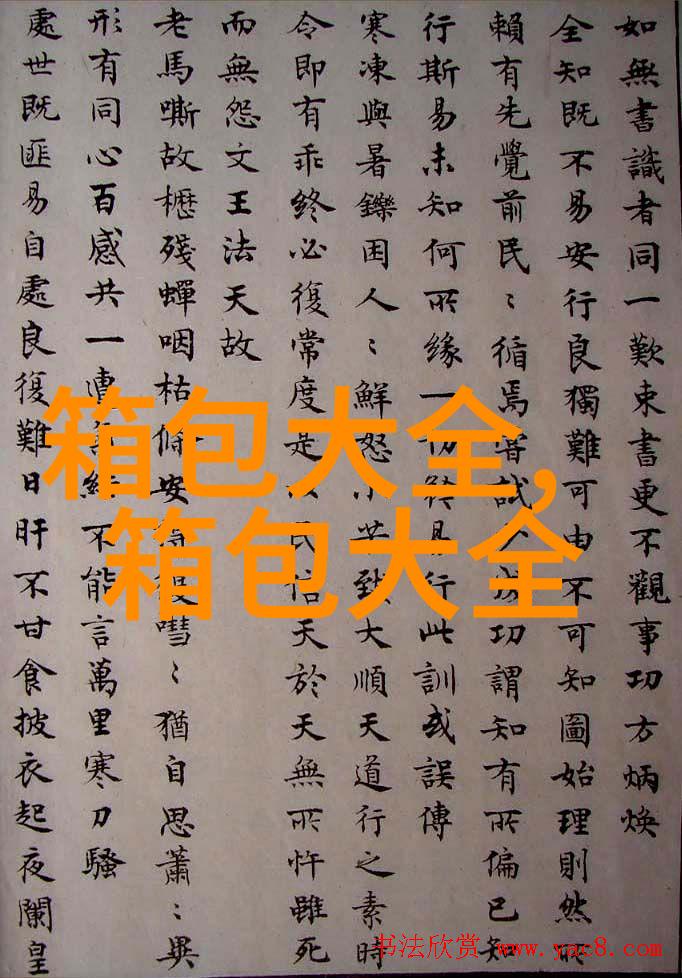 如無書識者同一歎束書更不觀事功方炳煥
全知既不易安行良獨難可由不可知圖始理則然所
賴有先覺前民〻循焉嘗試成功謂知有所偏已知
行斯易未知何所緣一切易行此訓或誤傳
寒凍與暑鑠困人〻鮮怒小苦致大順天道行之素時
令即有乖終必復常度是以民怙天於天無所忤雖死
而無怨文王法天故
老馬嘶故櫪殘蟬咽枯條安得嘒〻猶自思蕭〻異
形有同心百感共一遭不能言萬里寒刀騷
處世既匪易自處良復難日旰不甘食披衣起夜闌皇
箱包大全,
箱包大全
书法欣赏 www.yac8.com